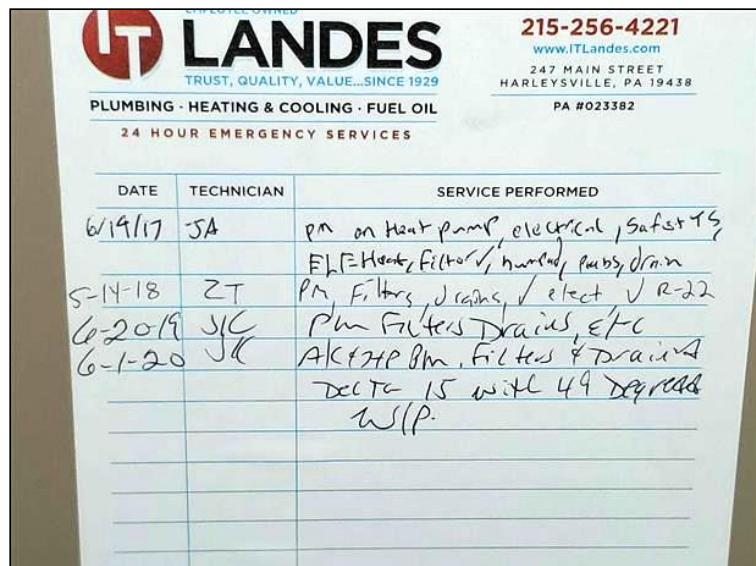 EMPLOYEE OWNED
IT LANDES
TRUST, QUALITY, VALUE...SINCE 1929
PLUMBING · HEATING & COOLING · FUEL OIL
24 HOUR EMERGENCY SERVICES
215-256-4221
www.ITLandes.com
247 MAIN STREET
HARLEYSVILLE, PA 19438
PA #023382
DATE TECHNICIAN SERVICE PERFORMED
6/19/17 JA PM on Heat pump, electrical,
Heat, Filter √, humid, drain
5-14-18 ZT PM, Filters, drains, √ elect √ R-22
6-20-19 JK PM Filters Drains, Etc
6-1-20 JK A/C & HP PM, Filters & Drains
Delta 15 with 49 Degrees
W/P.